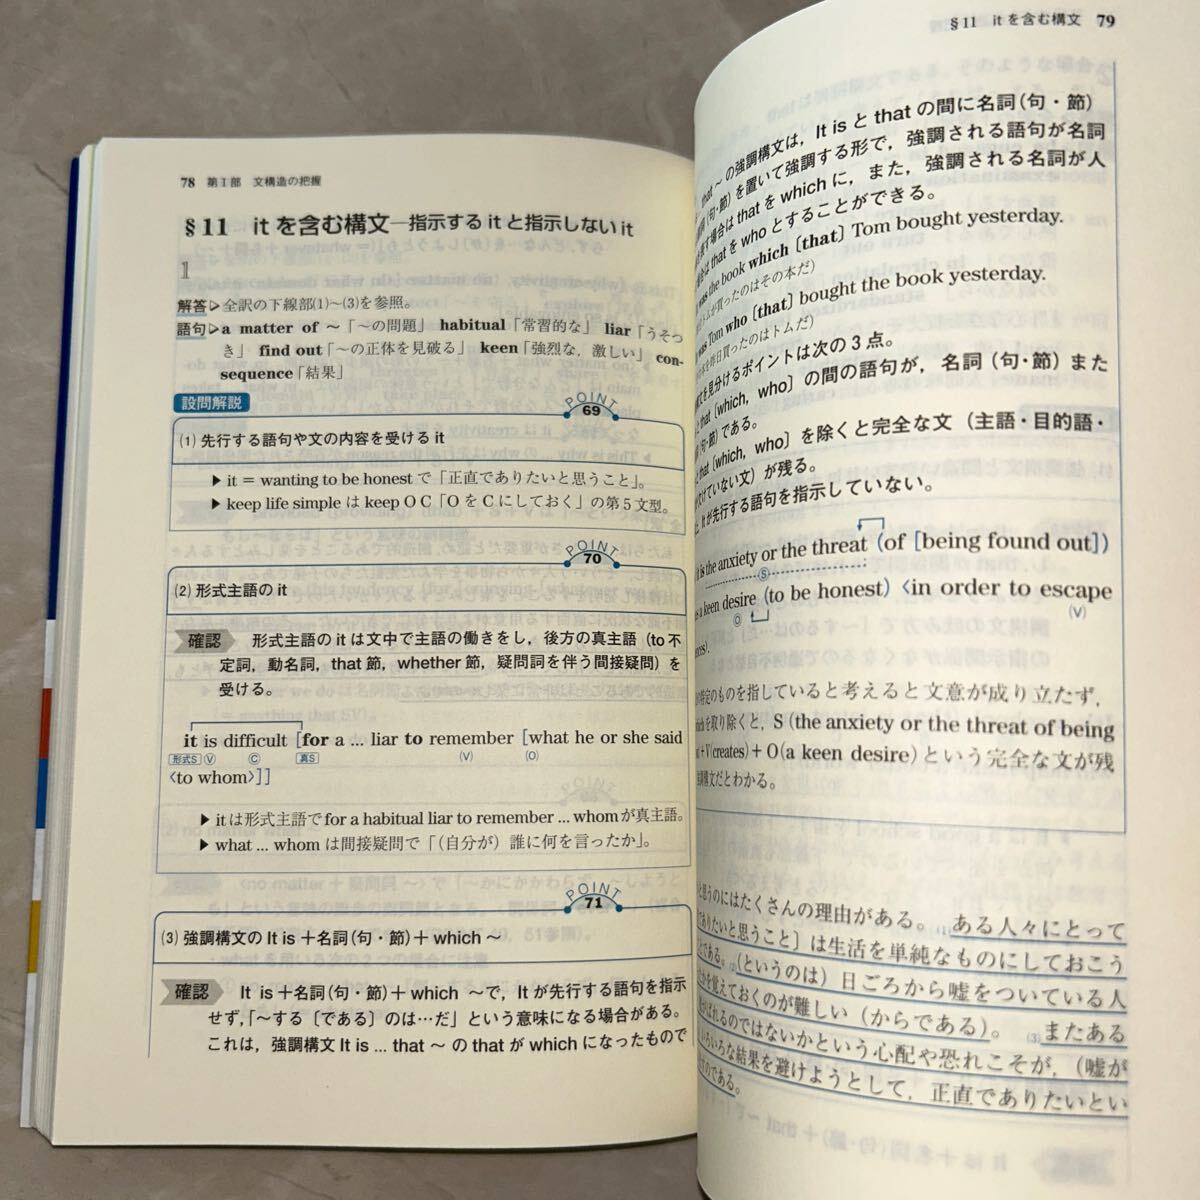 78 第Ⅰ部 文構造の把握
§11 it を含む構文—指示する it と指示しない it
1
解答▷全訳の下線部(1)～(3)を参照。
語句▷a matter of ～「～の問題」 habitual「常習的な」 liar「うそつ
き」 find out「～の正体を見破る」 keen「強烈な，激しい」 con-
sequence「結果」
設問解説
POINT 69
(1) 先行する語句や文の内容を受ける it
▶ it = wanting to be honest で「正直でありたいと思うこと」。
▶ keep life simple は keep O C「O を C にしておく」の第5文型。
POINT 70
(2) 形式主語の it
確認 形式主語の it は文中で主語の働きをし，後方の真主語（to 不
定詞，動名詞，that 節，whether 節，疑問詞を伴う間接疑問）を
受ける。
it is difficult [for a ... liar to remember [what he or she said
形式S V C 真S (V) (O)
<to whom>]]
▶ it は形式主語で for a habitual liar to remember ... whom が真主語。
▶ what ... whom は間接疑問で「（自分が）誰に何を言ったか」。
POINT 71
(3) 強調構文の It is＋名詞(句・節)＋which ～
確認 It is＋名詞(句・節)＋which ～で，It が先行する語句を指示
せず，「～する〔である〕のは…だ」という意味になる場合がある。
これは，強調構文 It is ... that ～ の that が which になったもので
§11 it を含む構文 79
that ～ の強調構文は，It is と that の間に名詞(句・節)
(句・節)を置いて強調する形で，強調される語句が名詞
場合は that を which に，また，強調される名詞が人
は that を who とすることができる。
was the book which〔that〕Tom bought yesterday.
トムが買ったのはその本だ）
was Tom who〔that〕bought the book yesterday.
を昨日買ったのはトムだ）
を見分けるポイントは次の3点。
that〔which, who〕の間の語句が，名詞（句・節）また
(句・節)である。
that〔which, who〕を除くと完全な文（主語・目的語・
けていない文）が残る。
It が先行する語句を指示していない。
it is the anxiety or the threat (of [being found out])
S
a keen desire (to be honest) <in order to escape
O (V)
特定のものを指していると考えると文意が成り立たず，
which を取り除くと，S (the anxiety or the threat of being
＋V(creates)＋O(a keen desire)という完全な文が残
調構文だとわかる。
と思うのにはたくさんの理由がある。(1)ある人々にとって
でありたいと思うこと〕は生活を単純なものにしておこう
とである。(2)（というのは）日ごろから嘘をついている人
かを覚えておくのが難しい（からである）。(3)またある
ばれるのではないかという心配や恐れこそが，（嘘が
いろいろな結果を避けようとして，正直でありたいとい
すのである。